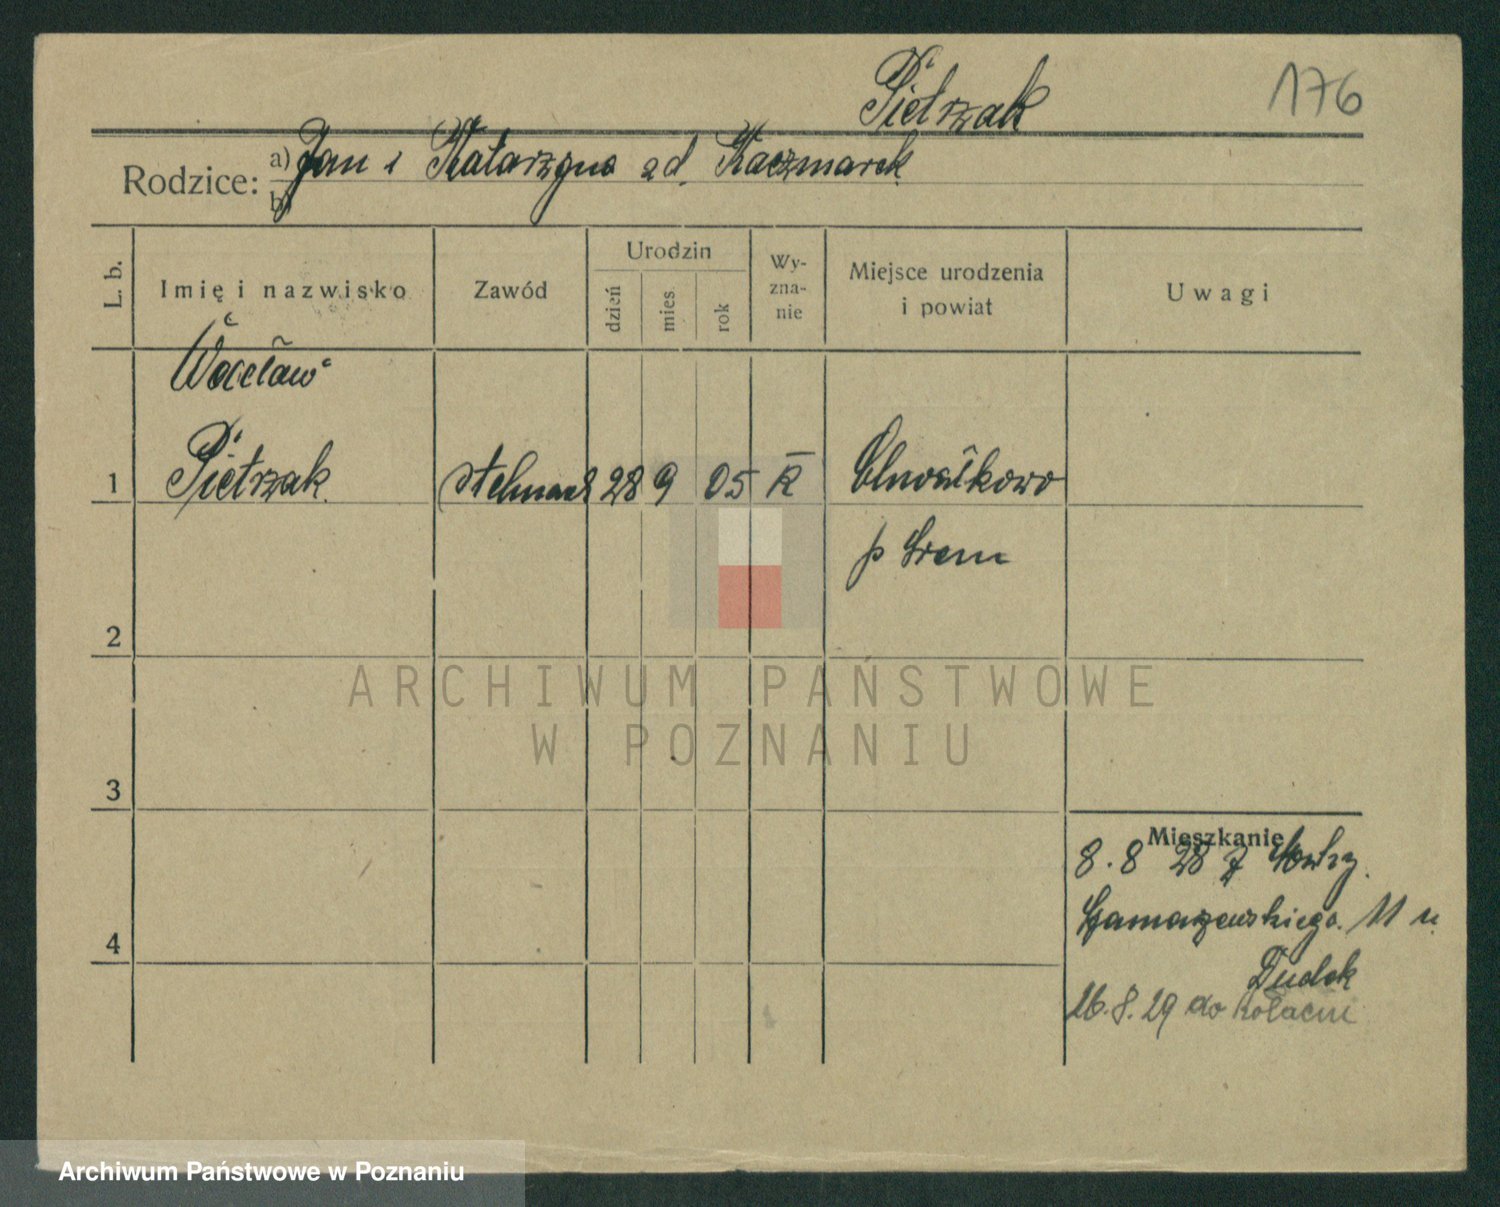 Pietrzak
176
Rodzice: a) Jan i Katarzyna zd. Kaczmarek
b)
L. b.
Imię i nazwisko
Zawód
Urodzin
dzień
mies
rok
Wy-
zna-
nie
Miejsce urodzenia
i powiat
Uwagi
Wacław
1 Pietrzak stelmach 28 9 05 K Chwałkowo
p Śrem
2
ARCHIWUM PAŃSTWOWE
W POZNANIU
3
Mieszkanie
8.8 28 z
Szamarzewskiego. 11 u.
4
Dudek
26.8.29 do
Archiwum Państwowe w Poznaniu